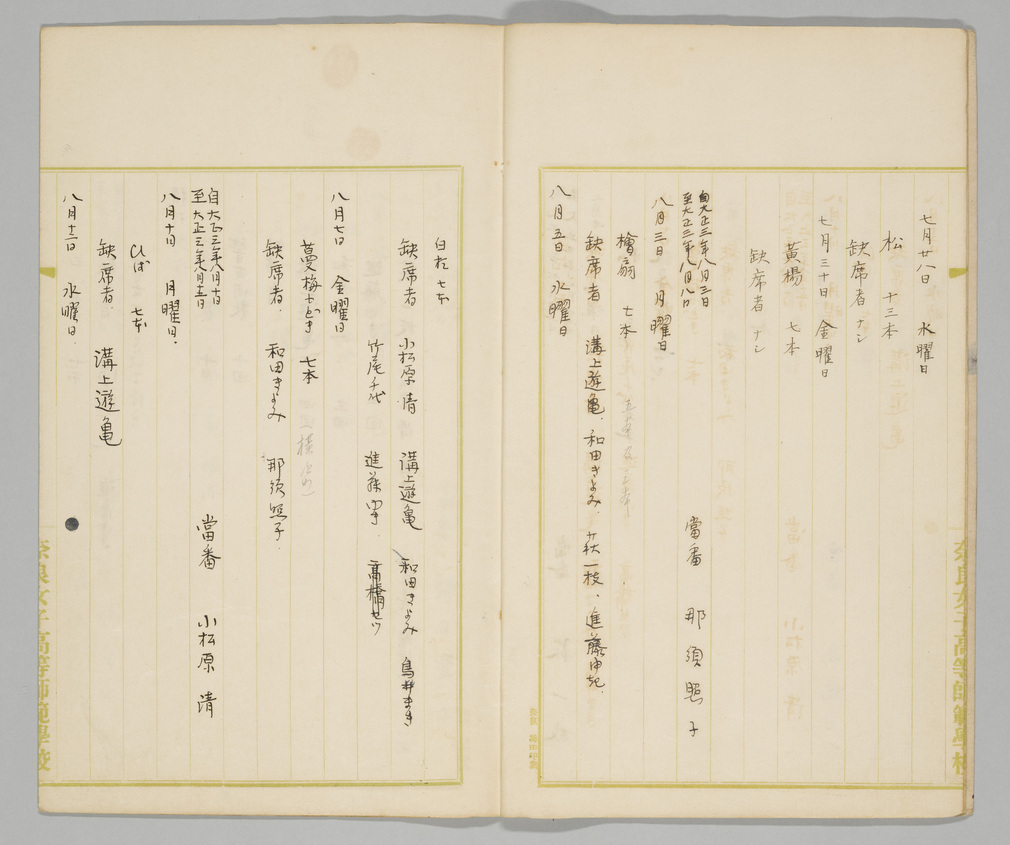 七月廿八日 水曜日
松 十三本
缺席者 ナシ
七月三十日 金曜日
黃楊 七本
缺席者 ナシ
自大正三年八月三日
至大正三年八月八日
當番 那須照子
八月三日 月曜日
檜扇 七本
缺席者 溝上遊亀、和田きよみ、 一枝、進藤
八月五日 水曜日
白松 七本
缺席者 小松原清 溝上遊亀 和田きよみ 鳥井まき
竹尾千代 進藤 高橋セツ
八月七日 金曜日
蔓梅もどき 七本
缺席者. 和田きよみ 那須照子.
自大正三年八月十日
至大正三年八月十三日
當番 小松原清
八月十日 月曜日.
ひば 七本
缺席者. 溝上遊亀
八月十二日 水曜日.
奈良女子高等師範學校
奈良女子高等師範學校